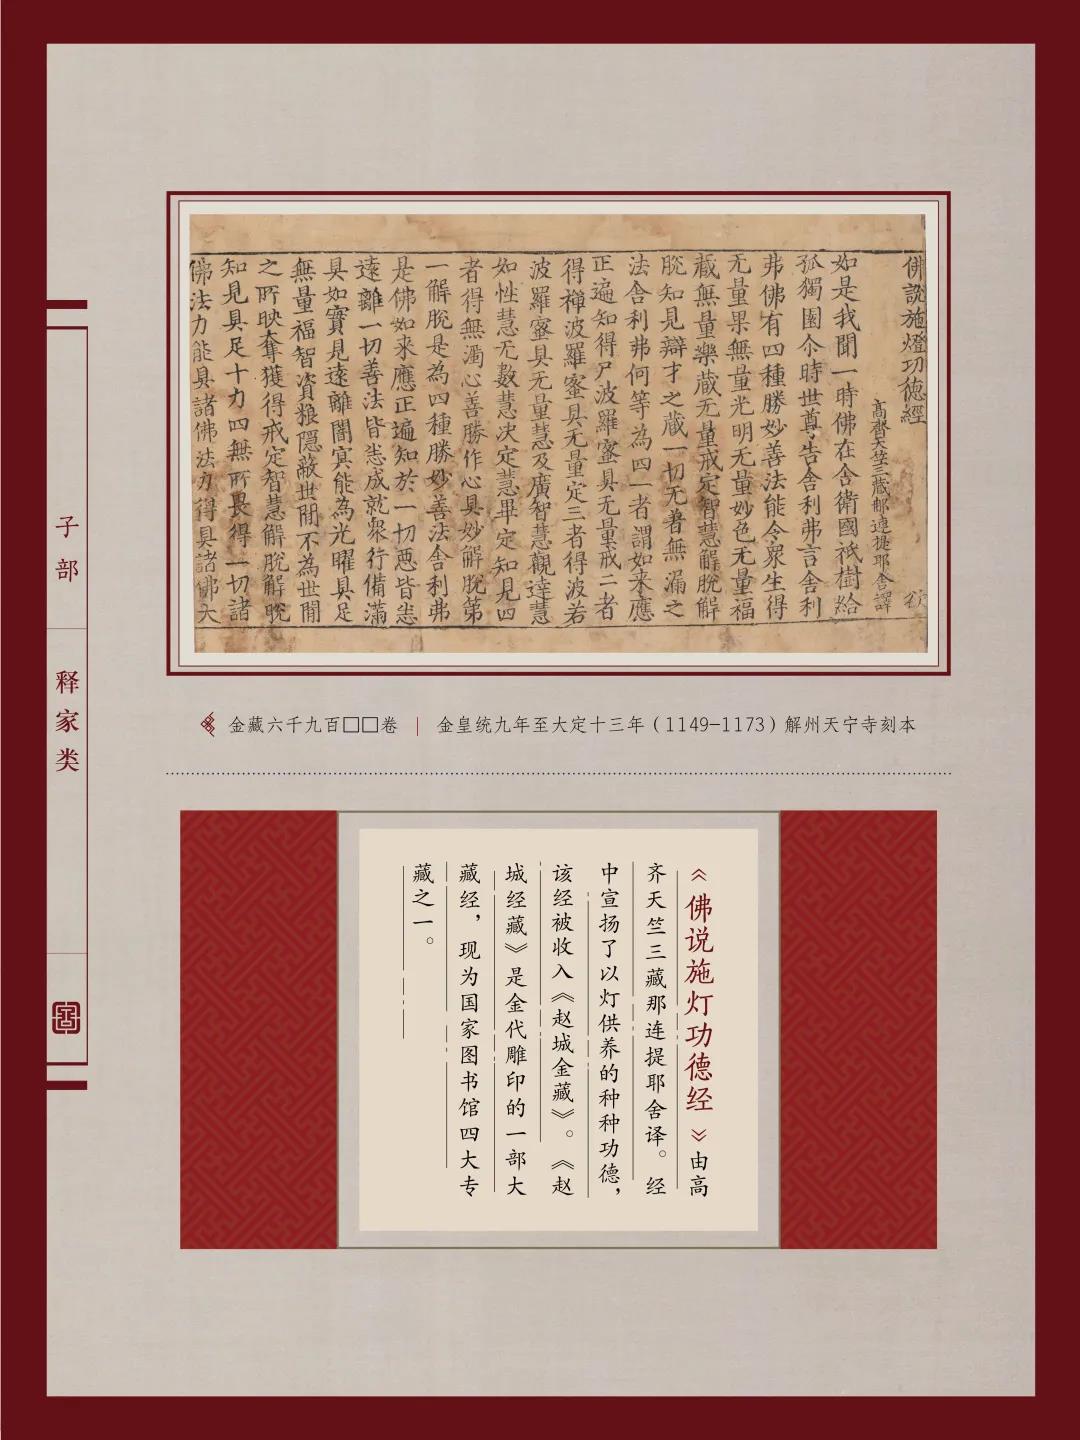 佛說施燈功德經
高齊天竺三藏那連提耶舍譯
如是我聞一時佛在舍衛國祇樹給
孤獨園尒時世尊告舍利弗言舍利
弗佛有四種勝妙善法能令衆生得
无量果無量光明无量妙色无量福
藏無量樂藏无量戒定智慧解脫解
脫知見辯才之藏一切无著無漏之
法舍利弗何等為四一者謂如来應
正遍知得尸波羅蜜具无量戒二者
得禅波羅蜜具无量定三者得波若
波羅蜜具无量慧及廣智慧觀達慧
如性慧无數慧决定慧畢定知見四
者得無濁心善勝作心具妙解脫第
一解脫是為四種勝妙善法舍利弗
是佛如来應正遍知於一切惡皆悉
遠離一切善法皆悉成就衆行備滿
具如實見遠離闇冥能為光曜具足
無量福智資粮隱蔽世間不為世間
之所映奪獲得戒定智慧解脫解脫
知見具足十力四無所畏得一切諸
佛法力能具諸佛法力得具諸佛大
子部
释家类
金藏六千九百□□卷 | 金皇统九年至大定十三年（1149-1173）解州天宁寺刻本
《佛说施灯功德经》由高
齐天竺三藏那连提耶舍译。经
中宣扬了以灯供养的种种功德，
该经被收入《赵城金藏》。《赵
城经藏》是金代雕印的一部大
藏经，现为国家图书馆四大专
藏之一。